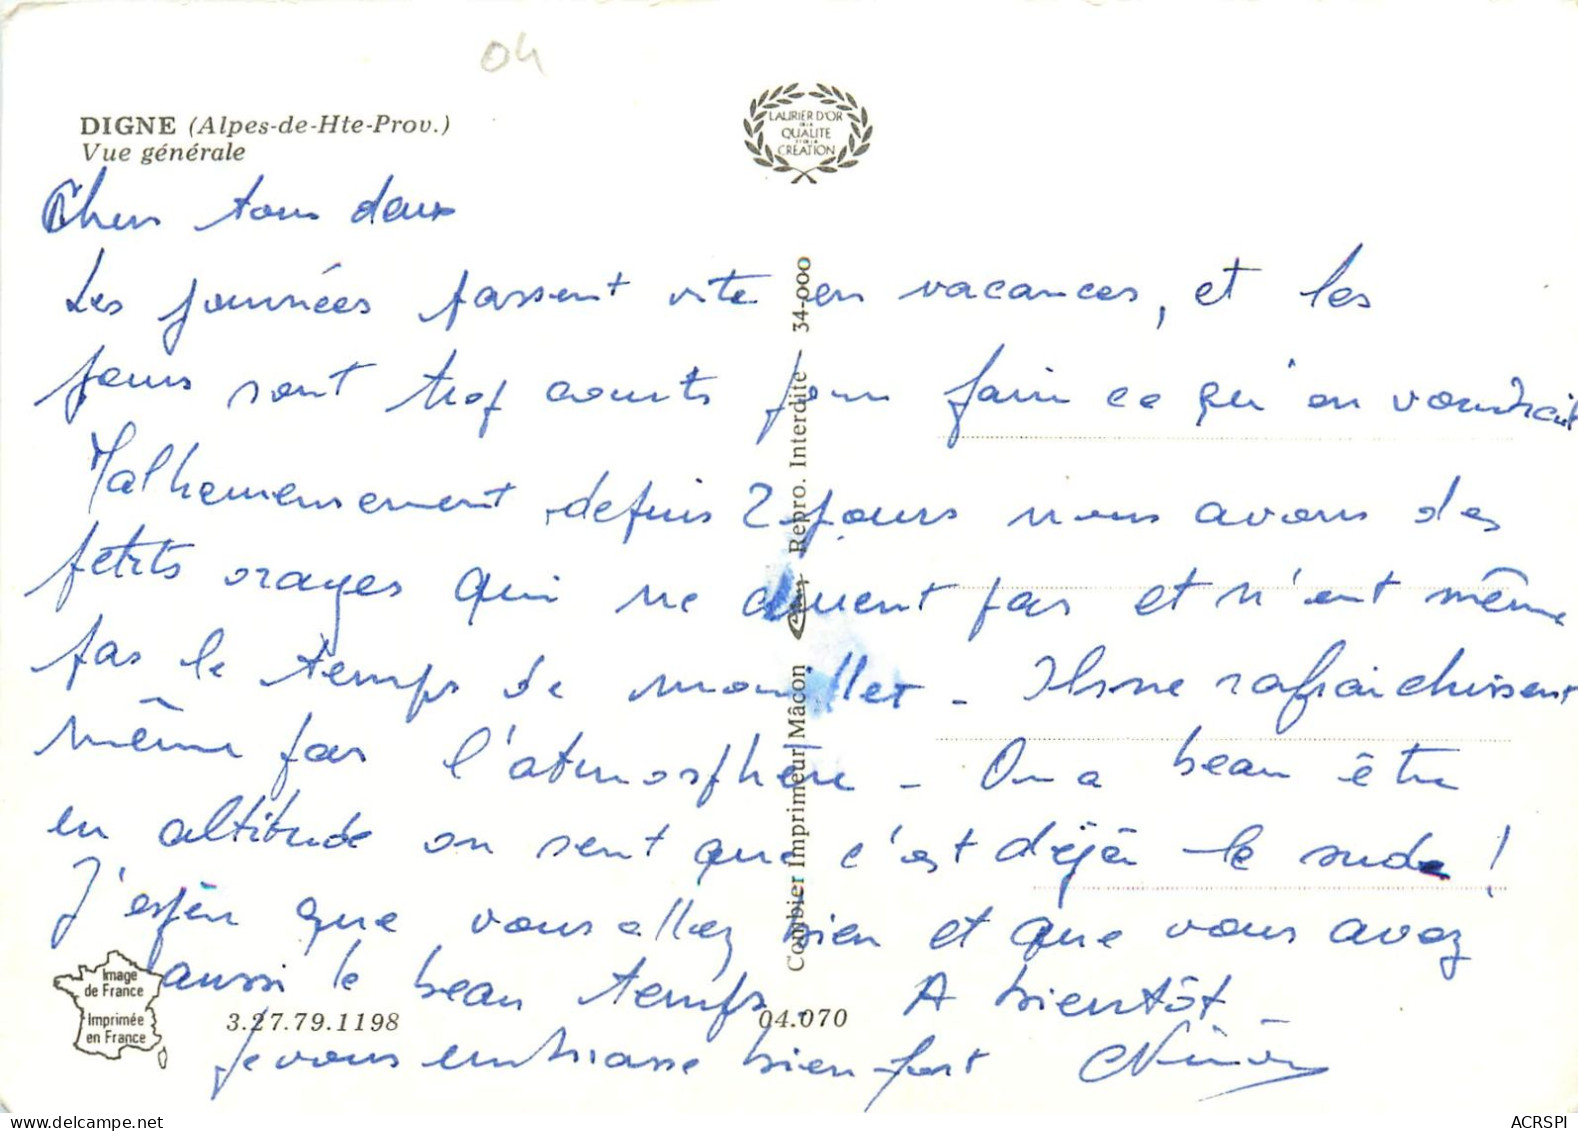 04
DIGNE (Alpes-de-Hte-Prov.)
Vue générale
LAURIER D'OR
DE LA
QUALITE
ET DE LA
CRÉATION
Chers tous deux
Les journées passent vite en vacances, et les
jours sont trop courts pour faire ce qu'on voudrait
Malheureusement depuis 2 jours nous avons des
petits orages qui ne durent pas et n'ont même
pas le temps de mouiller - Ils ne rafraichissent
même pas l'atmosphère - On a beau être
en altitude on sent que c'est déjà le sude !
J'espère que vous allez bien et que vous avez
aussi le beau temps. A bientôt
Je vous embrasse bien fort
Combier Imprimeur Mâcon Repro. Interdite 34-000
Image
de France
Imprimée
en France
3.27.79.1198
04.070
ACRSPI